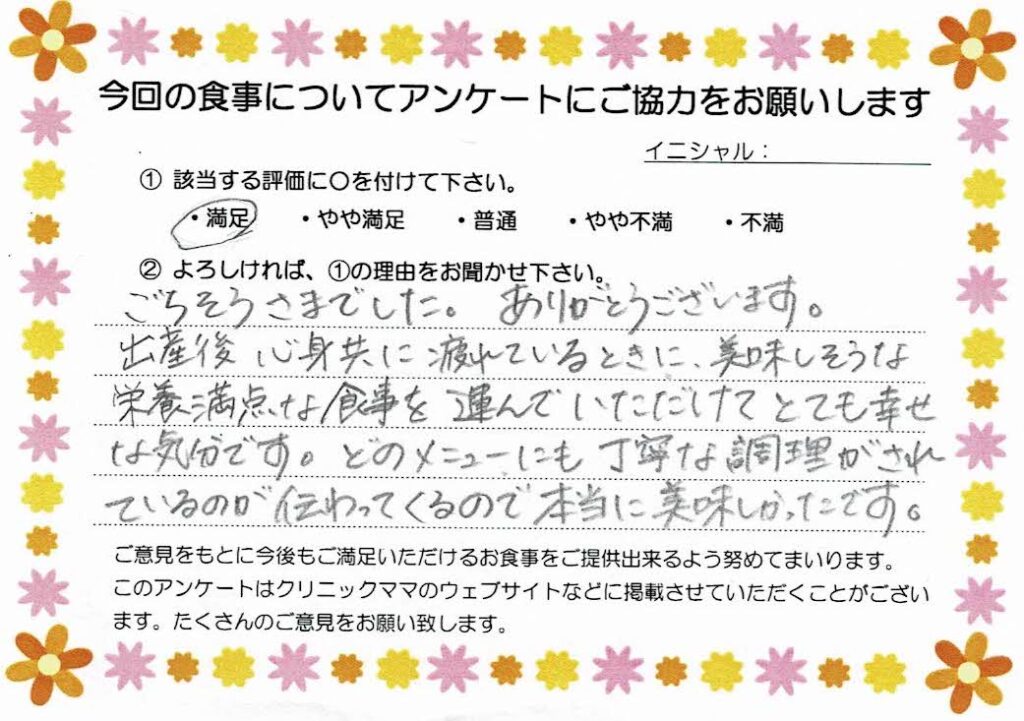 今回の食事についてアンケートにご協力をお願いします
イニシャル：
① 該当する評価に〇を付けて下さい。
・満足 ・やや満足 ・普通 ・やや不満 ・不満
② よろしければ、①の理由をお聞かせ下さい。
ごちそうさまでした。 ありがとうございます。
出産後 心身共に疲れているときに、美味しそうな
栄養満点な食事を運んでいただけてとても幸せ
な気分です。どのメニューにも丁寧な調理がされ
ているのが伝わってくるので本当に美味しかったです。
ご意見をもとに今後もご満足いただけるお食事をご提供出来るよう努めてまいります。
このアンケートはクリニックママのウェブサイトなどに掲載させていただくことがござい
ます。たくさんのご意見をお願い致します。